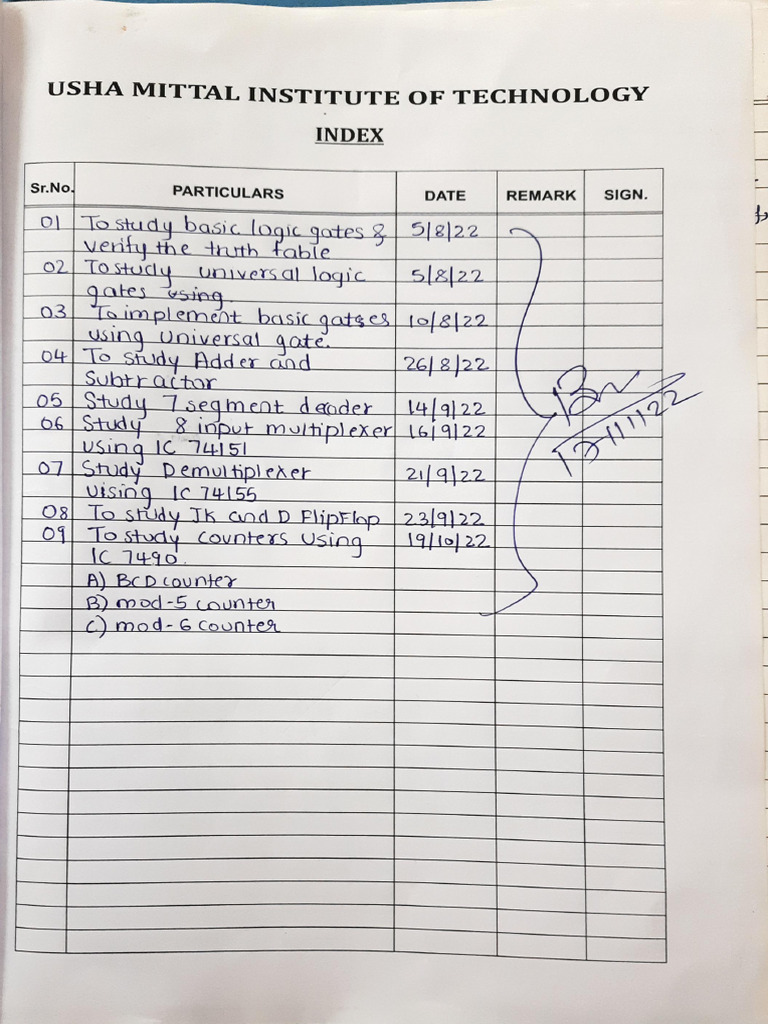 USHA MITTAL INSTITUTE OF TECHNOLOGY
INDEX
Sr.No. PARTICULARS DATE REMARK SIGN.
01 To study basic logic gates & 5/8/22
verify the truth table
02 To study universal logic 5/8/22
gates using
03 To implement basic gates 10/8/22
using universal gate.
04 To study Adder and 26/8/22
Subtractor
05 Study 7 segment decoder 14/9/22
06 Study 8 input multiplexer 16/9/22
using IC 74151
07 Study Demultiplexer 21/9/22
using IC 74155
08 To study JK and D FlipFlop 23/9/22
09 To study counters using 19/10/22
IC 7490.
A) BCD counter
B) mod-5 counter
C) mod-6 counter